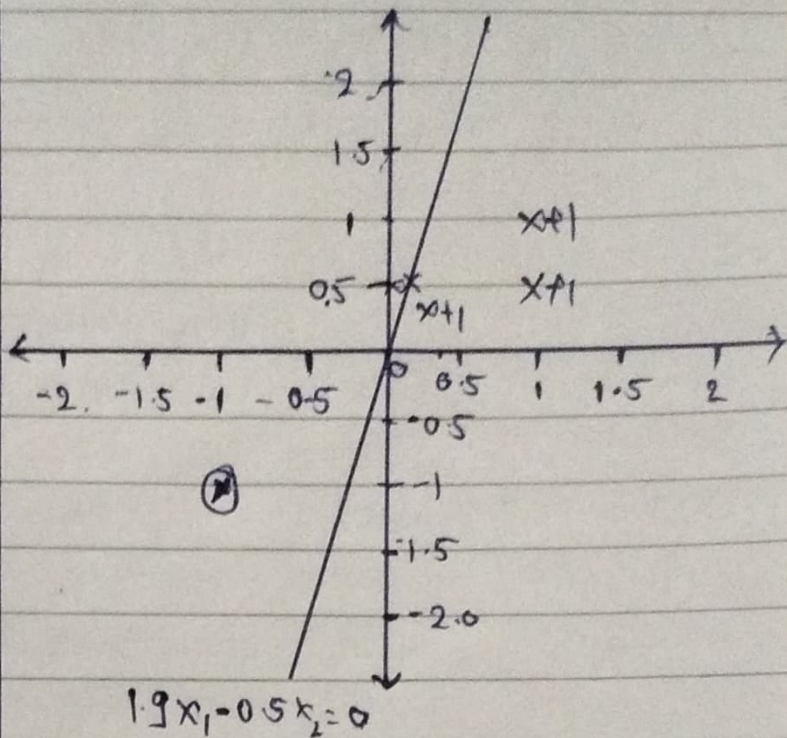 2
1.5
1 x+1
0.5 x+1
x+1
-2. -1.5 -1 -0.5 0 0.5 1 1.5 2
-0.5
-1
-1.5
-2.0
1.9x₁-0.5x₂=0